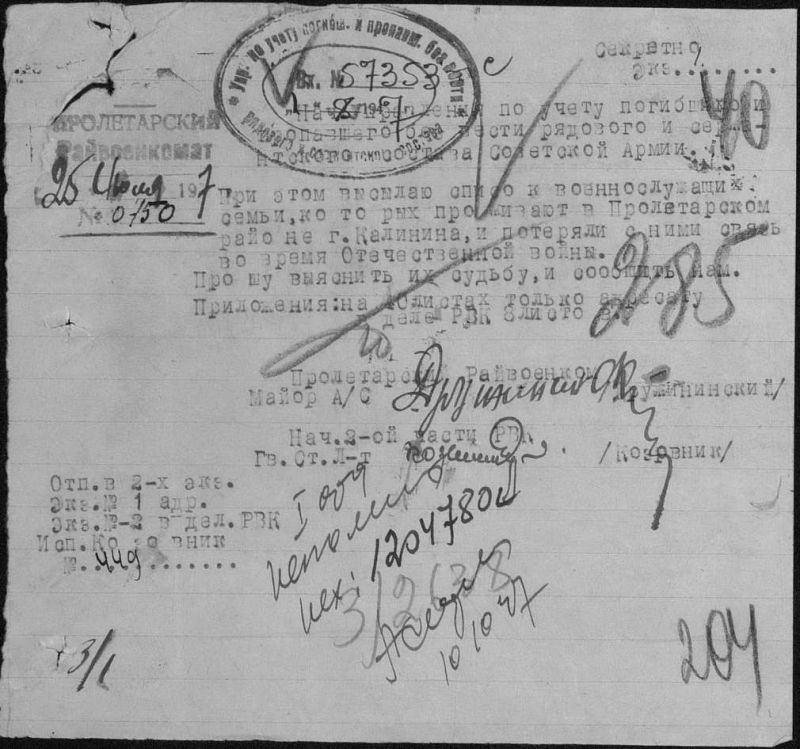 Секретно
Экз.........
Упр. по учету погибш. и пропавш. без вести
Вх. № 57353
40
Нач. Управления по учету погибшего и
пропавшего без вести рядового и сер
нтского состава Советской Армии.
ПРОЛЕТАРСКИЙ
Райвоенкомат
25 Июля 1947
№ 0750
При этом высылаю списо к военнослужащих
семьи,ко то рых проживают в Пролетарском
райо не г.Калинина,и потеряли с ними связь
во время Отечественной войны.
Про шу выяснить их судьбу,и сообщить нам.
285
Приложения:на листах только адресату
в деле РВК 8листо в.
20
Пролетарский Райвоенком
Майор А/С /Дружининский/
Нач.2-ой части РВК
Гв.Ст.Л-т /Козовник/
Отп.в 2-х экз.
Экз.№ 1 адр.
Экз.№-2 в дел.РВК
Исп.Ко зо вник
№.449..........
исх: 1204780
3/2638
10 10 47
3/1
204